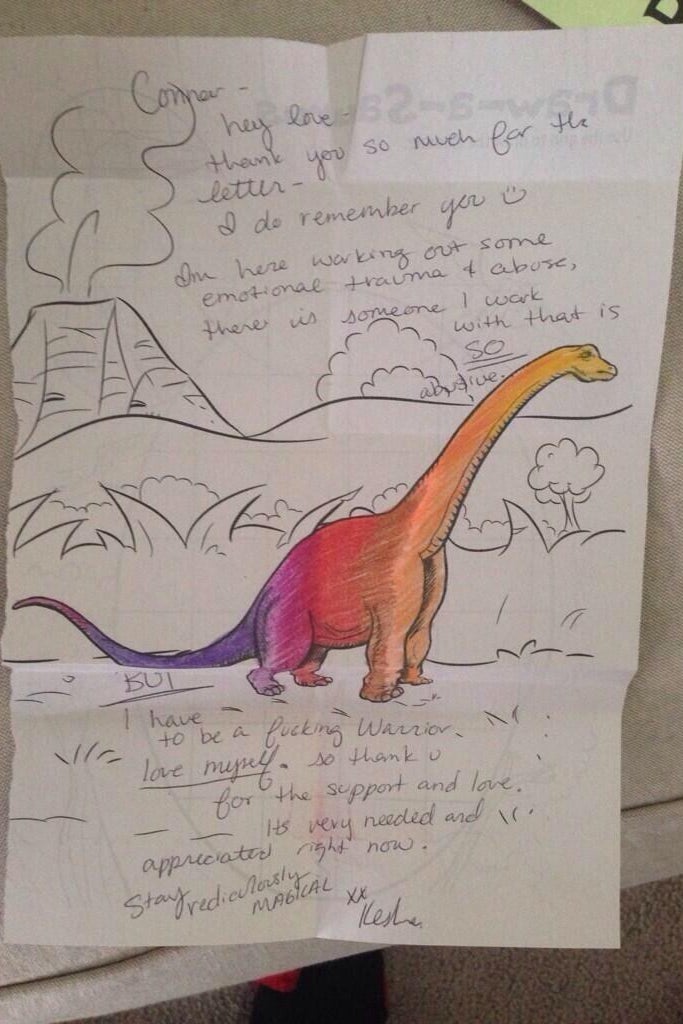 Connor -
hey love -
thank you so much for the
letter -
I do remember you
Im here working out some
emotional trauma & abuse,
there is someone I work
with that is
SO
abusive.
BUT
I have
to be a fucking Warrior.
love myself. so thank u
for the support and love.
Its very needed and
appreciated right now.
Stay rediculously
MAGICAL
xx
Kesha
Draw-a-Saurus